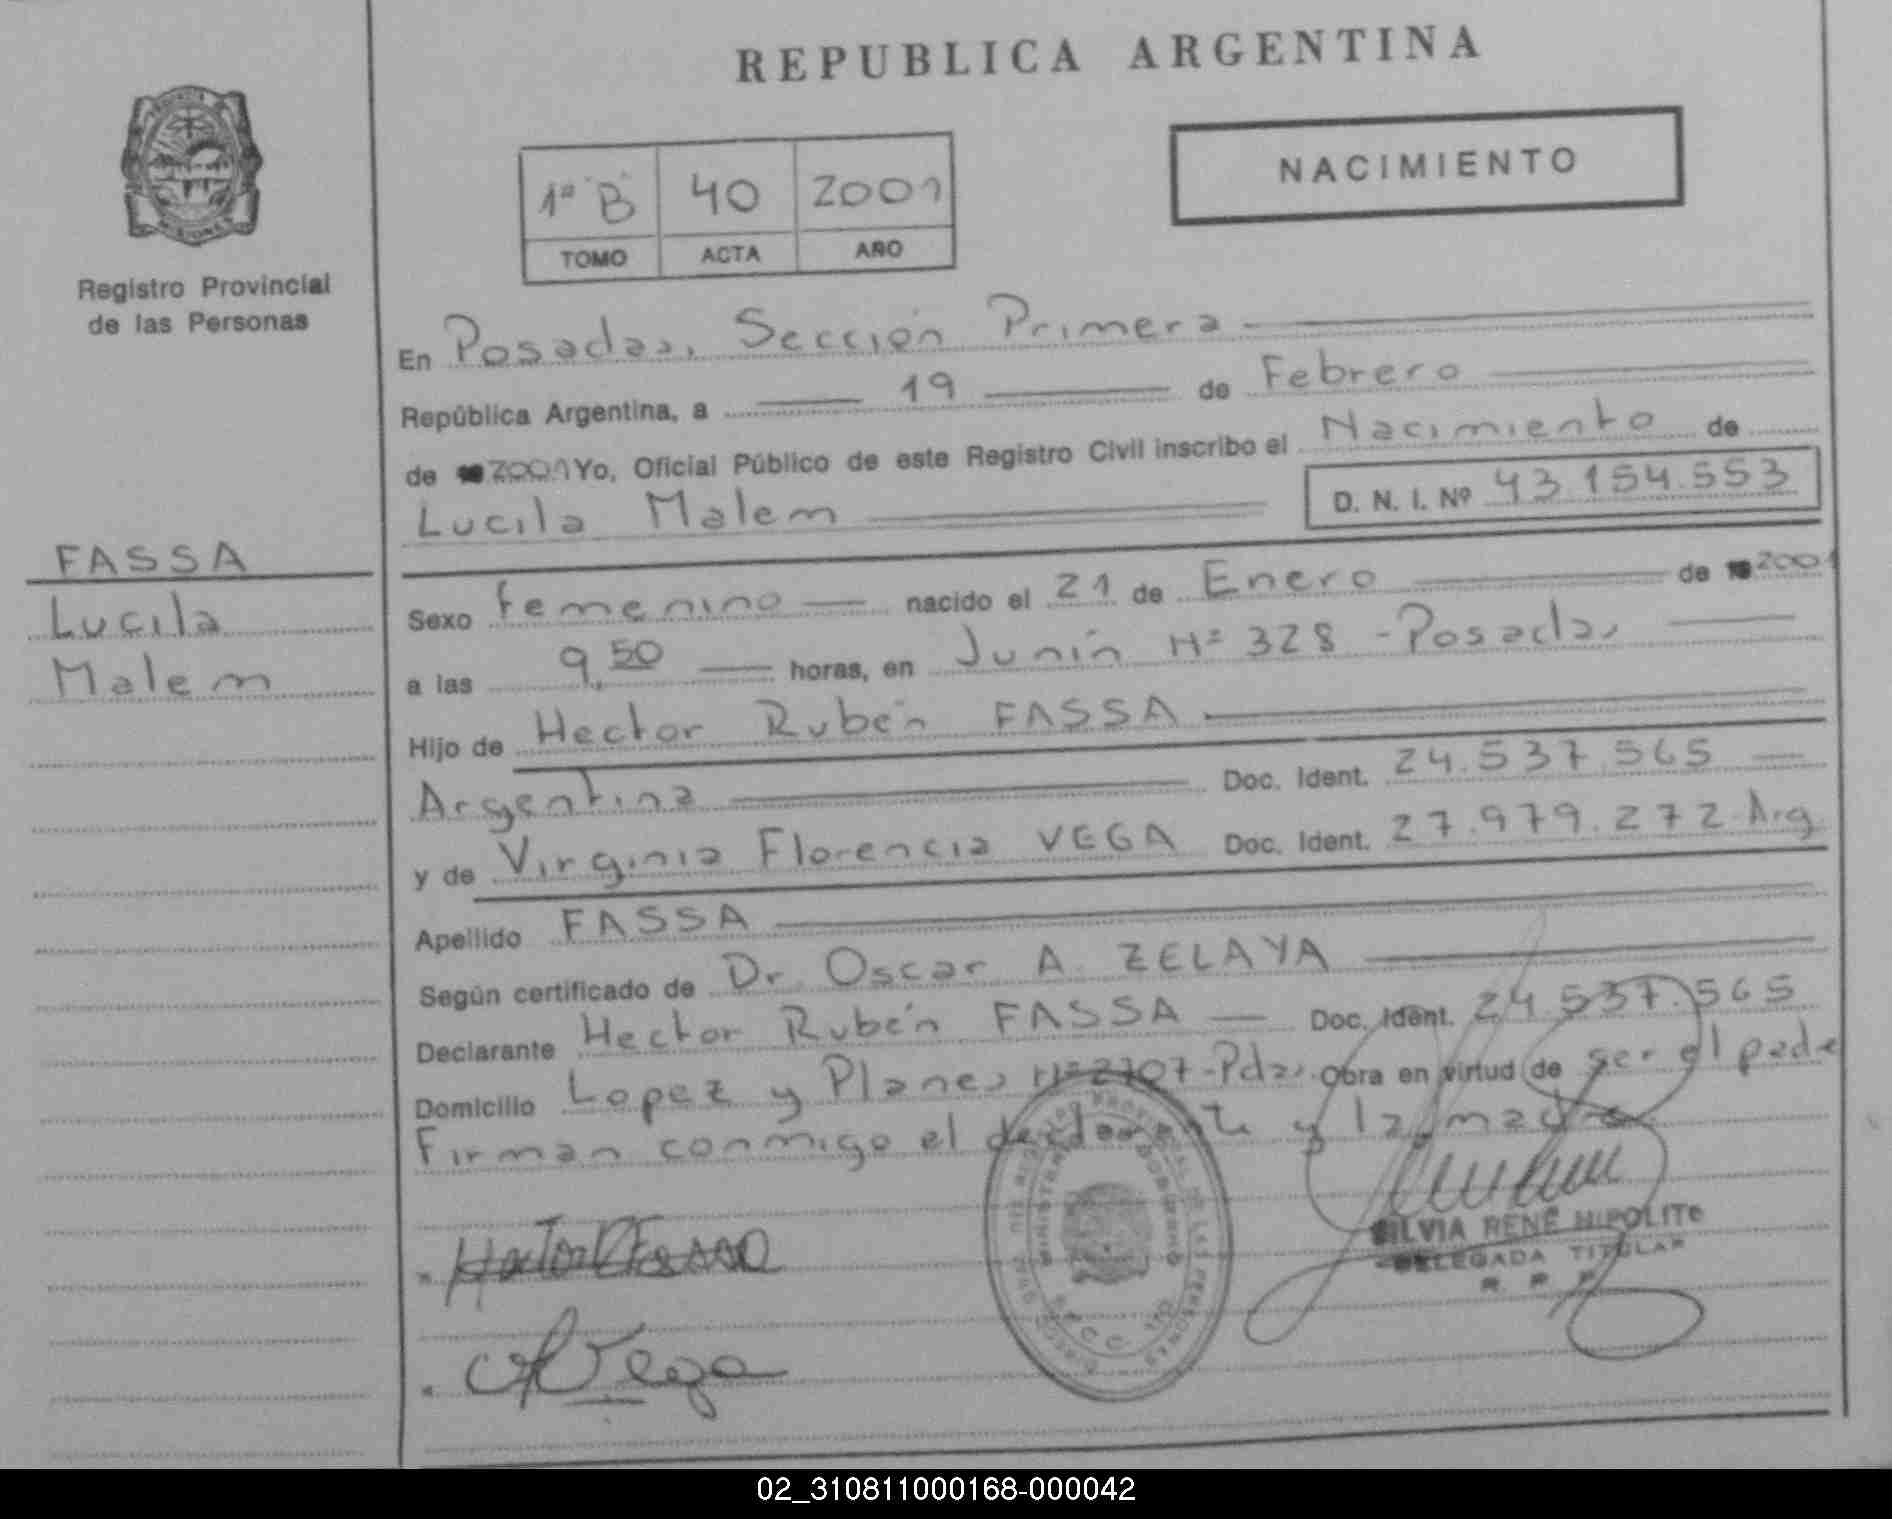 REPUBLICA ARGENTINA
NACIMIENTO
1º "B" 40 2001
TOMO ACTA AÑO
Registro Provincial
de las Personas
En Posadas, Sección Primera
República Argentina, a 19 de Febrero
de 2001 Yo, Oficial Público de este Registro Civil inscribo el Nacimiento de
Lucila Malem D. N. I. Nº 43.154.553
FASSA
Lucila
Malem
Sexo femenino nacido el 21 de Enero de 2001
a las 9,50 horas, en Junín Nº 328 - Posadas
Hijo de Hector Rubén FASSA
Argentina Doc. Ident. 24.537.565
y de Virginia Florencia VEGA Doc. Ident. 27.979.272 Arg.
Apellido FASSA
Según certificado de Dr. Oscar A. ZELAYA
Declarante Hector Rubén FASSA Doc. Ident. 24.537.565
Domicilio Lopez y Planes Nº 2707-Pdas. Obra en virtud de ser el padre
Firman conmigo el declarante y la madre
SILVIA RENÉ HIPOLITO
DELEGADA TITULAR
R. P. P.
Vega
02_310811000168-000042